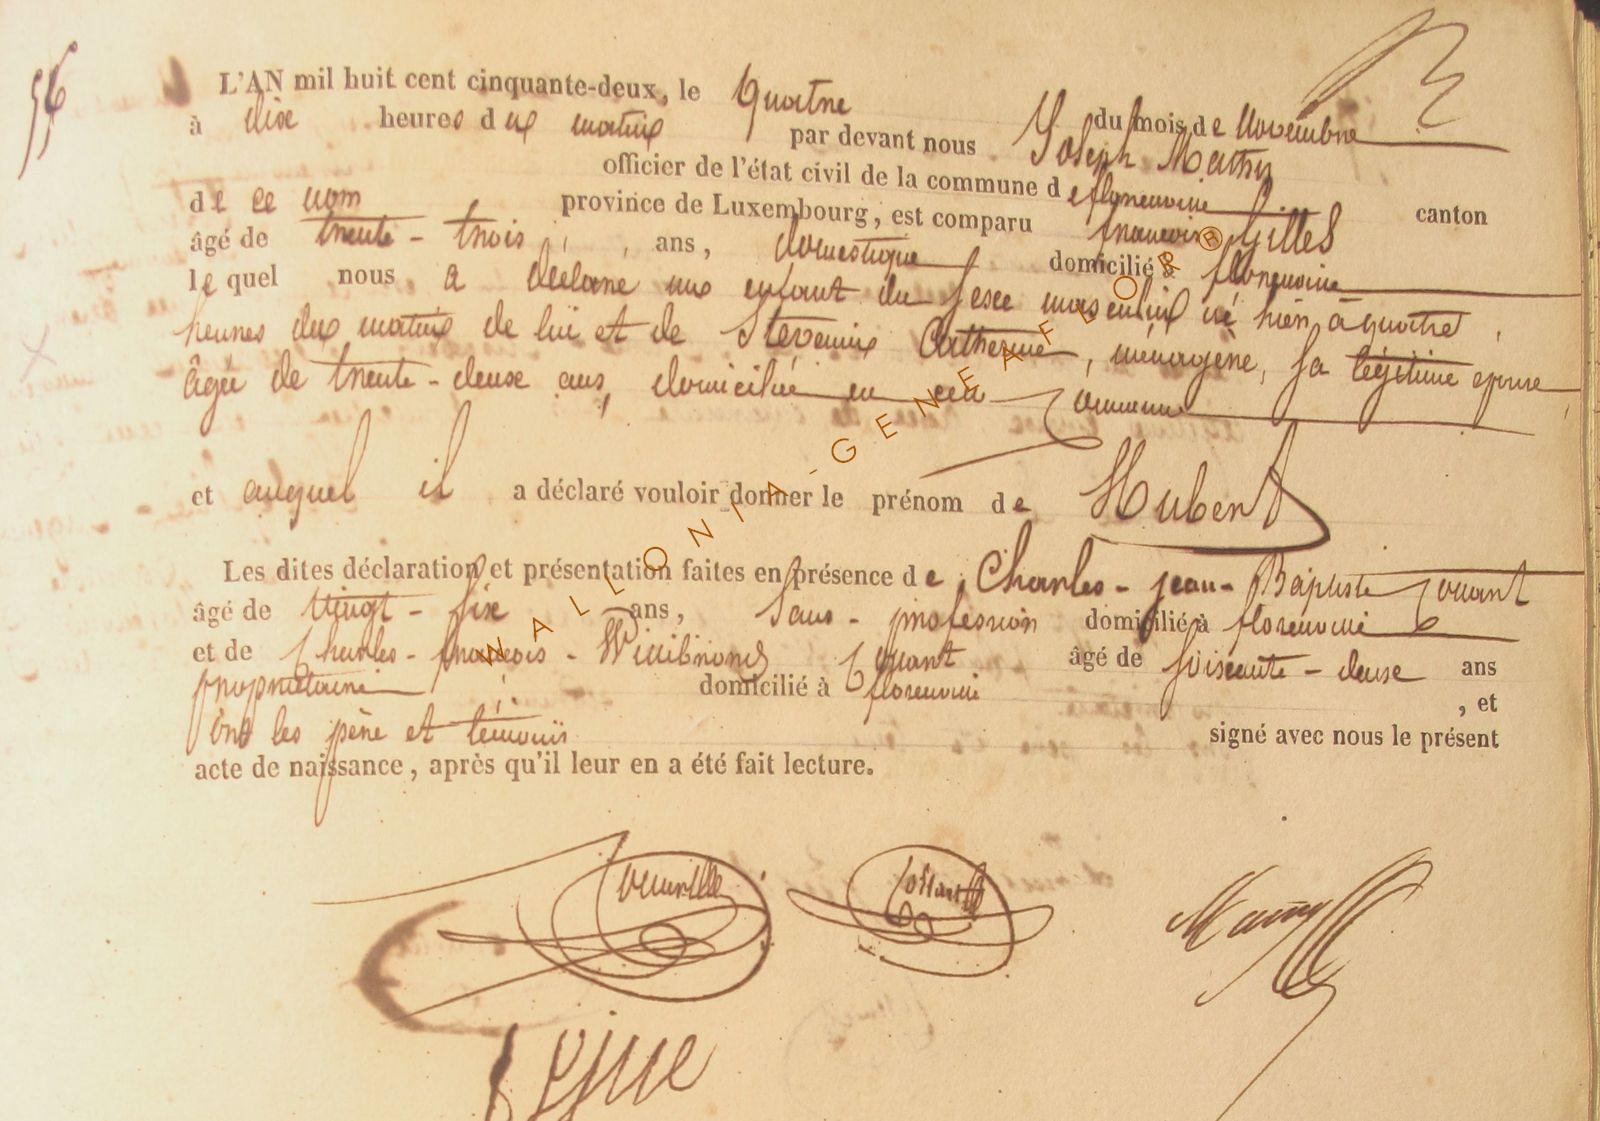 56
L'AN mil huit cent cinquante-deux, le Quatre du mois de novembre
à dix heures du matin par devant nous Joseph Mathy
officier de l'état civil de la commune de florenville canton
de ce nom province de Luxembourg, est comparu francois Gilles
âgé de trente-trois ans, domestique domicilié à florenville
lequel nous a déclaré un enfant du sexe masculin né hier à quatre
heures du matin de lui et de Stevenin Catherine, ménagère, sa légitime épouse
âgée de trente-deux ans, domiciliée en cette commune
et auquel il a déclaré vouloir donner le prénom de Hubert
Les dites déclaration et présentation faites en présence de Charles-jean-Baptiste
âgé de vingt-six ans, sans-profession domicilié à florenville
et de Charles-francois-Willibrord âgé de soixante-deux ans
propriétaire domicilié à florenville , et
ont les père et témoins signé avec nous le présent
acte de naissance, après qu'il leur en a été fait lecture.
WALLONIA-GENEAFLOR®